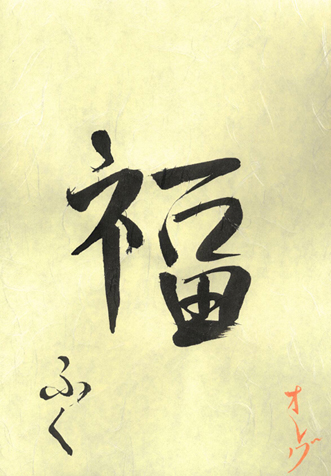 福
ふく
オレヴ